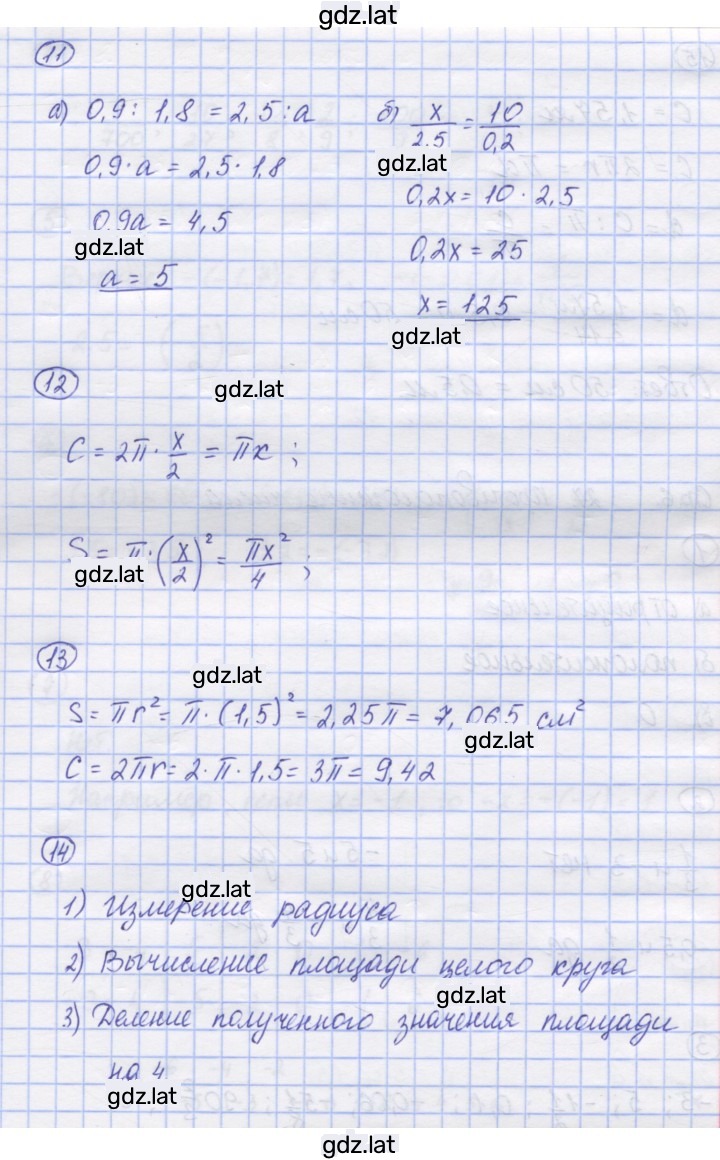 gdz.lat
11
а) 0,9 : 1,8 = 2,5 : a б) x/2.5 = 10/0,2
gdz.lat
0,9 · a = 2,5 · 1,8 0,2x = 10 · 2,5
0,9a = 4,5 0,2x = 25
gdz.lat
a = 5 x = 125
gdz.lat
12
gdz.lat
C = 2π · x/2 = πx ;
S = π · (x/2)² = πx²/4 ;
gdz.lat
13
gdz.lat
S = πr² = π · (1,5)² = 2,25π = 7,065 см²
gdz.lat
C = 2πr = 2 · π · 1,5 = 3π = 9,42
14
gdz.lat
1) Измерение радиуса
2) Вычисление площади целого круга
gdz.lat
3) Деление полученного значения площади
на 4
gdz.lat
gdz.lat